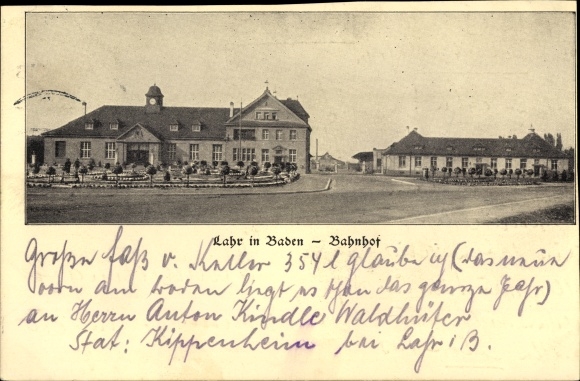 Lahr in Baden – Bahnhof
Große faß v. Keller 354 l glaube ich (das neue
vorn am boden liegt es schon das ganze Jahr)
an Herrn Anton Kindle Waldhüter
Stat: Kippenheim bei Lahr i/B.